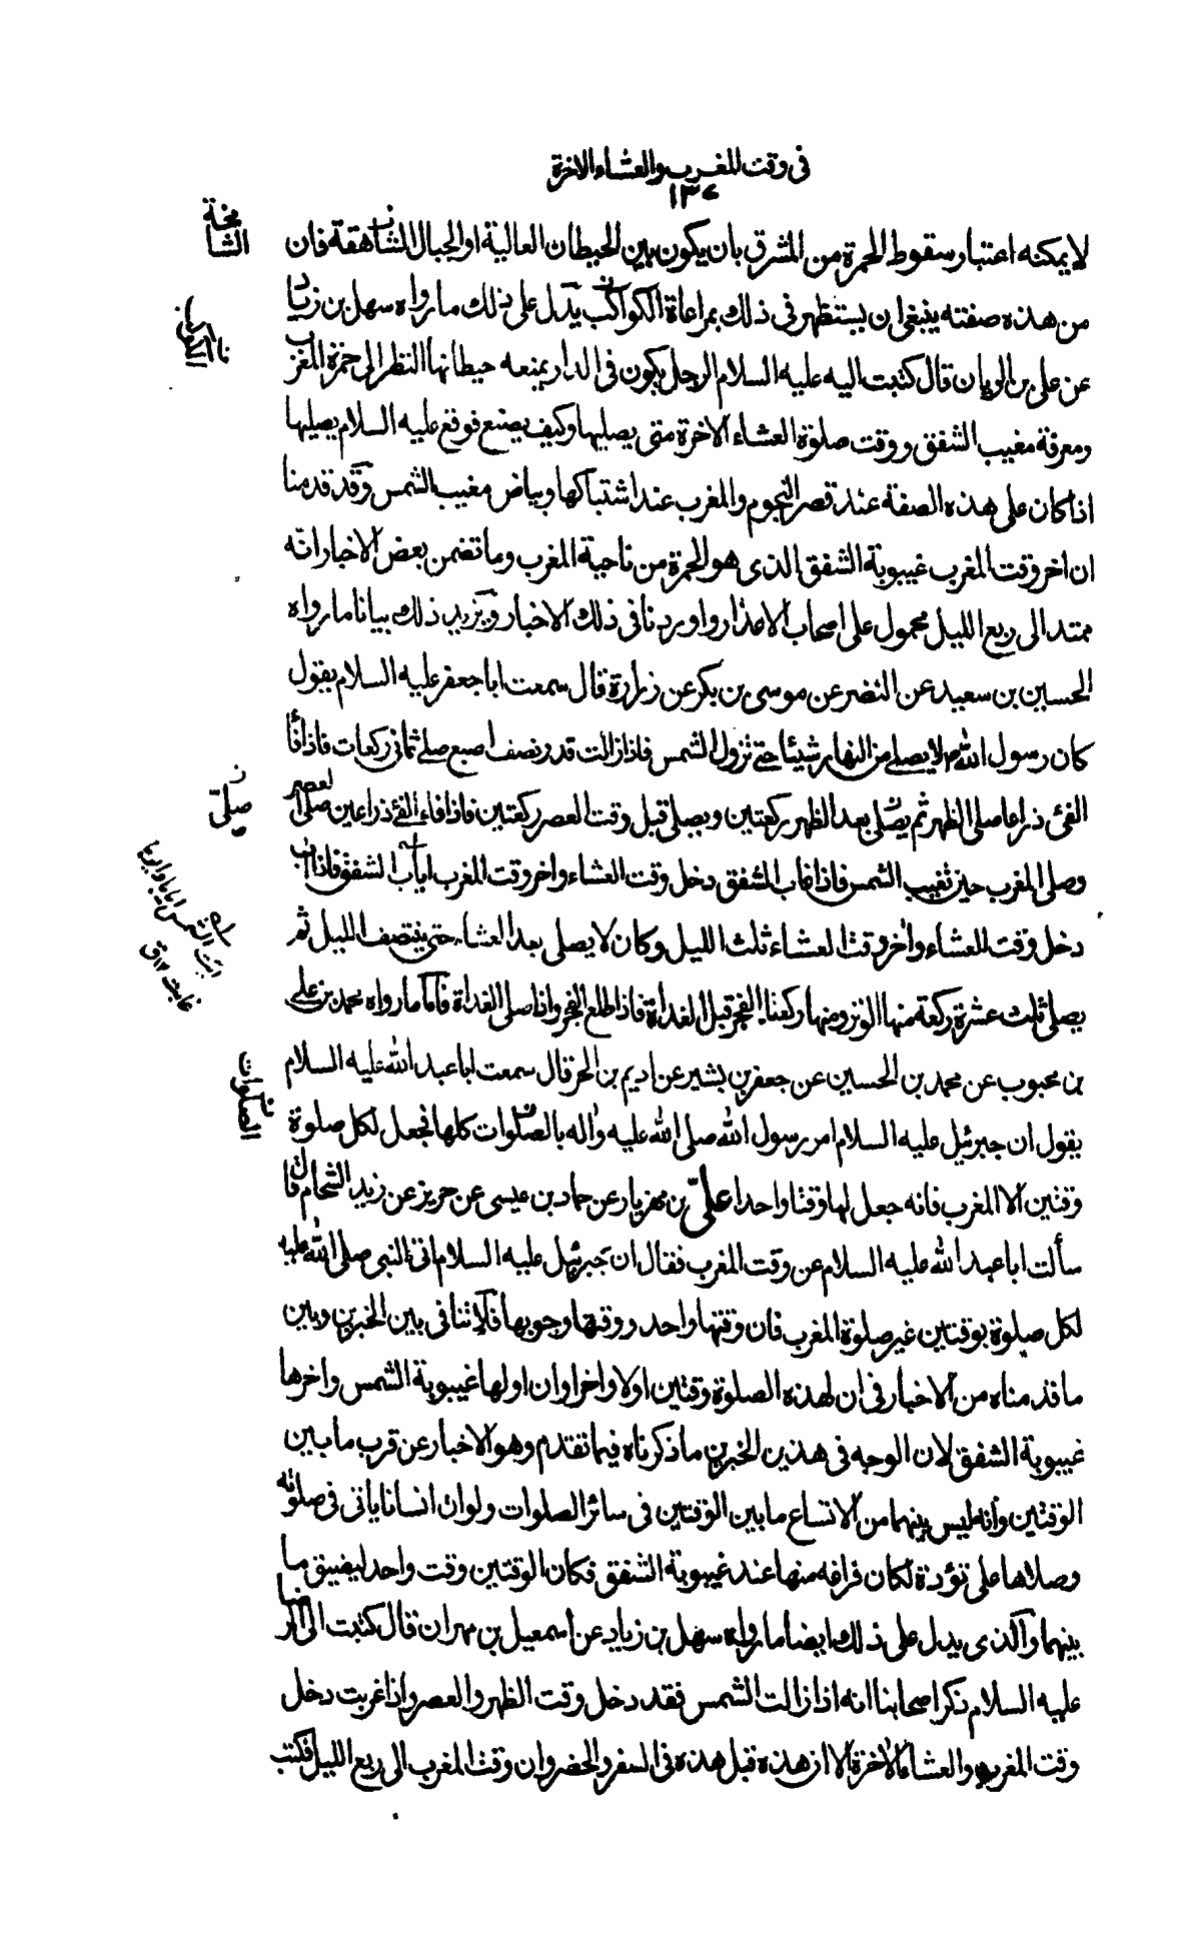 فى وقت المغرب والعشاء الاخرة
١٣٤
لا يمكنه اعتبار سقوط الحمرة من المشرق بان يكون بين الحيطان العالية او الجبال الشاهقة فان
الشامخة
من هذه صفته ينبغى ان يستظهر فى ذلك بمراعاة الكواكب يدل على ذلك ما رواه سهل بن زياد
عن على بن الريان قال كتبت اليه عليه السلام الرجل يكون فى الدار يمنعه حيطانها النظر الى حمرة المغرب
ومعرفة مغيب الشفق ووقت صلوة العشاء الآخرة متى يصليها وكيف يصنع فوقع عليه السلام يصليها
اذا كان على هذه الصفة عند قصر النجوم والمغرب عند اشتباكها وبياض مغيب الشمس وقد قدمنا
ان اخر وقت المغرب غيبوبة الشفق الذى هو الحمرة من ناحية المغرب وما تضمن بعض الاخبار انه
ممتد الى ربع الليل محمول على اصحاب الاعذار واوردنا فى ذلك الاخبار ويزيد ذلك بيانا ما رواه
الحسين بن سعيد عن النضر عن موسى بن بكر عن زرارة قال سمعت ابا جعفر عليه السلام يقول
كان رسول الله ص لا يصلى من النهار شيئا حتى تزول الشمس فاذا زالت قدر نصف اصبع صلى ثمانى ركعات فاذا فاء
الفئ ذراعا صلى الظهر ثم يصلى بعد الظهر ركعتين ويصلى قبل وقت العصر ركعتين فاذا فاء الفئ ذراعين صلى العصر
صلى
وصلى المغرب حين تغيب الشمس فاذا غاب الشفق دخل وقت العشاء واخر وقت المغرب اياب الشفق فاذا اب
ابت الشمس ايابا وايوبا
غابت ١٢ ق
دخل وقت العشاء واخر وقت العشاء ثلث الليل وكان لا يصلى بعد العشاء حتى ينتصف الليل ثم
يصلى ثلث عشرة ركعة منها الوتر ومنها ركعتا الفجر قبل الغداة فاذا طلع الفجر واضا صلى الغداة فاما ما رواه محمد بن على
بن محبوب عن محمد بن الحسين عن جعفر بن بشير عن اديم بن الحر قال سمعت ابا عبد الله عليه السلام
يقول ان جبرئيل عليه السلام امر رسول الله صلى الله عليه واله بالصلوات كلها فجعل لكل صلوة
الصلوات
وقتين الا المغرب فانه جعل لها وقتا واحدا على بن مهزيار عن حماد بن عيسى عن حريز عن زيد الشحام قال
سألت ابا عبد الله عليه السلام عن وقت المغرب فقال ان جبرئيل عليه السلام اتى النبى صلى الله عليه
لكل صلوة بوقتين غير صلوة المغرب فان وقتها واحد ووقتها وجوبها فلا تنافى بين الخبرين وبين
ما قدمناه من الاخبار فى ان لهذه الصلوة وقتين اولا واخرا وان اولها غيبوبة الشمس واخرها
غيبوبة الشفق لان الوجه فى هذين الخبرين ما ذكرناه فيما تقدم وهو الاخبار عن قرب ما بين
الوقتين وانه ليس بينهما من الاتساع ما بين الوقتين فى سائر الصلوات ولو ان انسانا يأتى فى صلوته
وصلاها على تؤدة لكان فراغه منها عند غيبوبة الشفق فكان الوقتين وقت واحد ليضيق ما
بينهما والذى يدل على ذلك ايضا ما رواه سهل بن زياد عن اسمعيل بن مهران قال كتبت الى الرضا
عليه السلام ذكر اصحابنا انه اذا زالت الشمس فقد دخل وقت الظهر والعصر واذا غربت دخل
وقت المغرب والعشاء الآخرة الا ان هذه قبل هذه فى السفر والحضر وان وقت المغرب الى ربع الليل فكتب